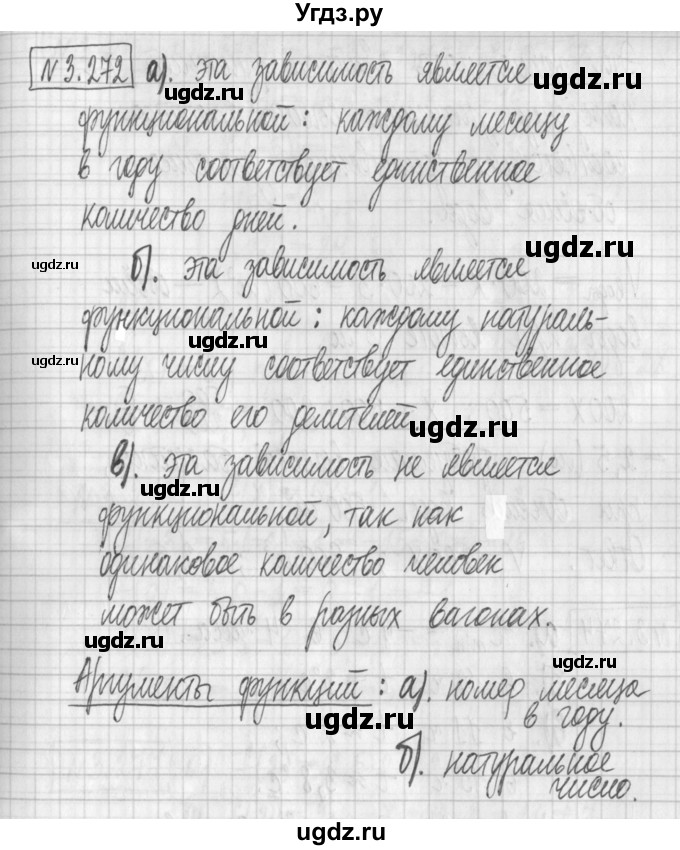 Угдз.ру
№3.272 а). эта зависимость является
ugdz.ru ugdz.ru
функциональной: каждому месяцу
в году соответствует единственное
количество дней. ugdz.ru
ugdz.ru б). эта зависимость является
функциональной: каждому натураль-
ugdz.ru
ugdz.ru ному числу соответствует единственное
количество его делителей. ugdz.ru
в). эта зависимость не является
ugdz.ru
функциональной, так как
одинаковое количество человек
может быть в разных вагонах.
ugdz.ru
ugdz.ru
Аргументы функций: а). номер месяца
ugdz.ru в году.
б). натуральное
ugdz.ru число.
ugdz.ru